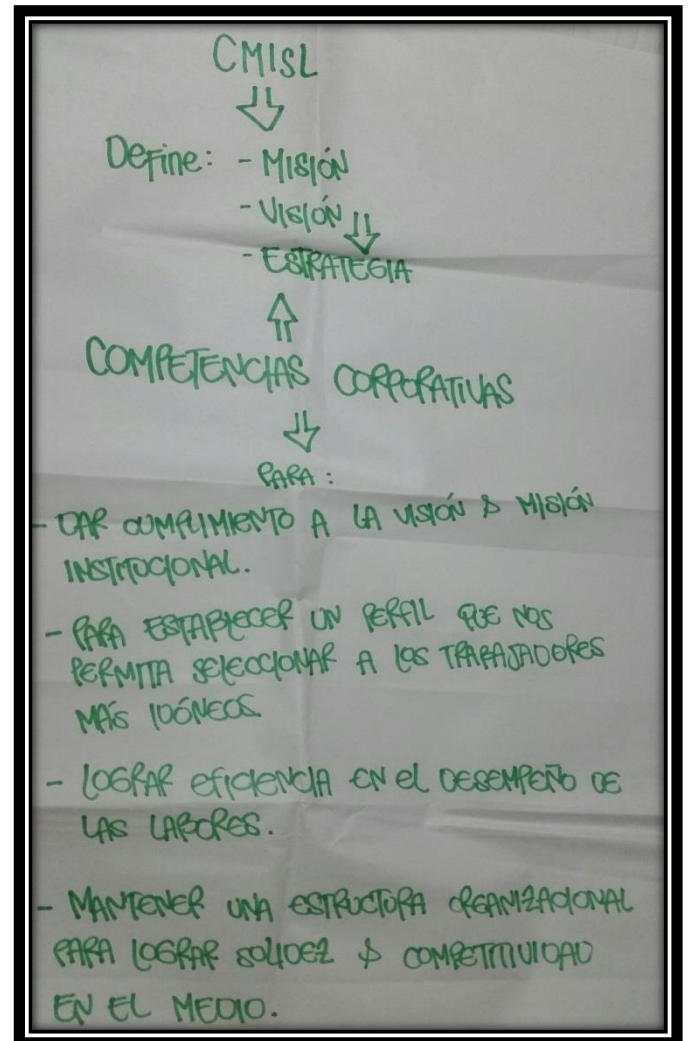 CMISL
Define: - MISIÓN
- VISIÓN
- ESTRATEGIA
COMPETENCIAS CORPORATIVAS
PARA:
- DAR CUMPLIMIENTO A LA VISIÓN & MISIÓN
INSTITUCIONAL.
- PARA ESTABLECER UN PERFIL QUE NOS
PERMITA SELECCIONAR A LOS TRABAJADORES
MÁS IDÓNEOS.
- LOGRAR EFICIENCIA EN EL DESEMPEÑO DE
LAS LABORES.
- MANTENER UNA ESTRUCTURA ORGANIZACIONAL
PARA LOGRAR SOLIDEZ & COMPETITIVIDAD
EN EL MEDIO.